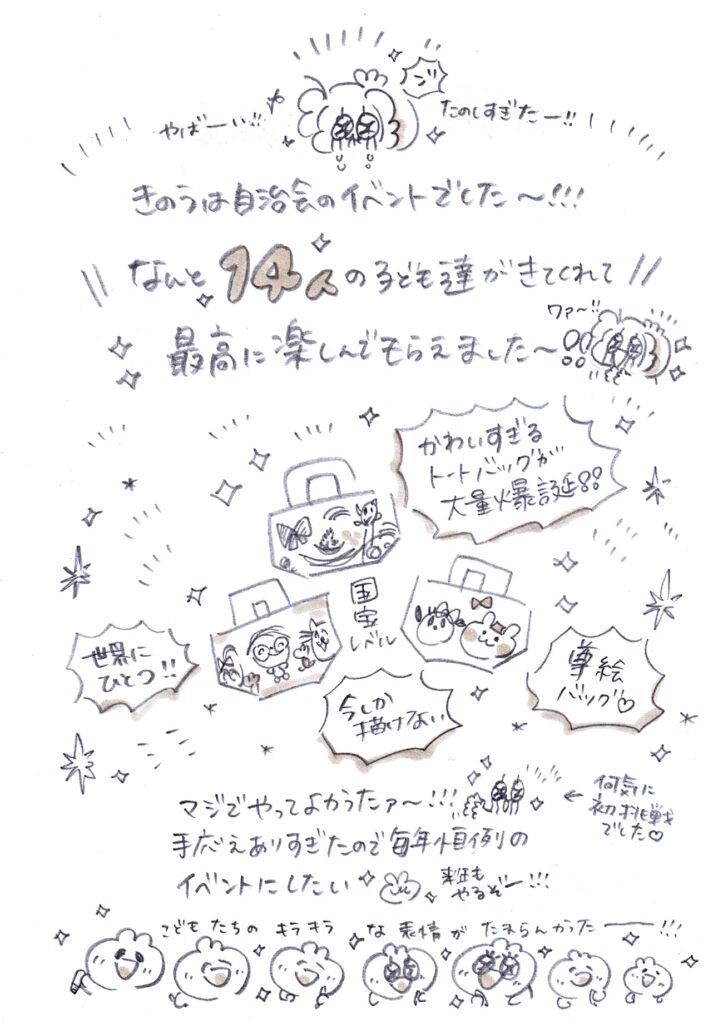 やばーい!!
たのしすぎたー!!
きのうは自治会のイベントでした〜!!!
なんと14人の子ども達がきてくれて
最高に楽しんでもらえました〜
ワァ〜!!
かわいすぎる
トートバッグが
大量爆誕!!
国宝
レベル
世界に
ひとつ!!
今しか
描けない
尊絵
バッグ♡
マジでやってよかったァ〜!!!
←何気に
初挑戦
でした♡
手応えありすぎたので毎年恒例の
イベントにしたい
来年も
やるぞー!!!
こどもたちのキラキラな表情がたまらんかったーー!!!